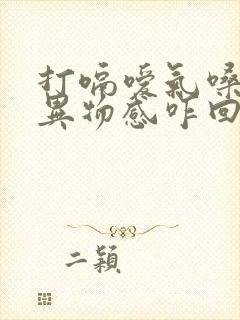 打嗝噯氣嗓
異物感咋回
二穎